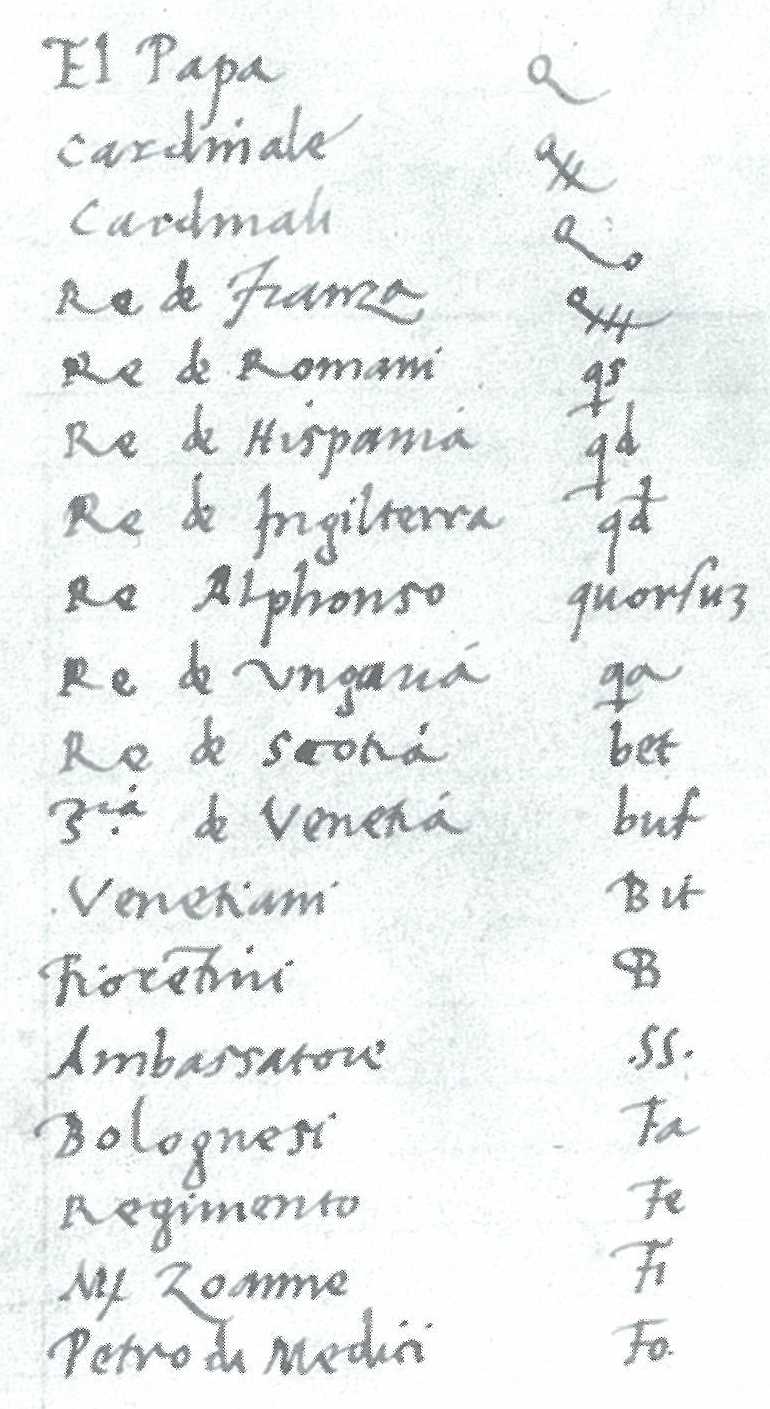 El Papa
Cardinale
Cardinali
Re de Franza
Re de Romani qs
Re de Hispania qd
Re de Ingilterra qd
Re Alphonso quorsuz
Re de Ungaria qa
Re de Scotia bet
de Venetia buf
Venetiani Bit
Fiorētini B
Ambassatori .SS.
Bolognesi Fa
Regimento Fe
Zoanne Fi
Petro di Medici Fo.